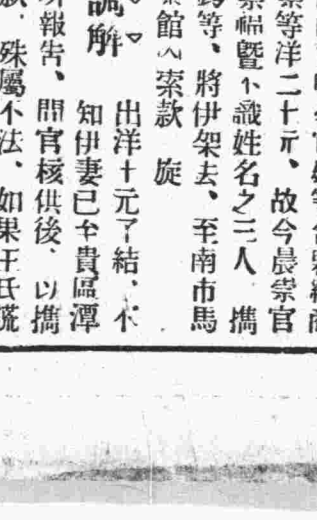 等洋二十元、故今晨祟官
福暨不識姓名之三人 㩦
等、將伊架去、至南市馬
館內索款 旋
出洋十元了結、不
調解
知伊妻已至貴區潭
報告、問官核供後、以㩦
殊屬不法、如果王氏謊